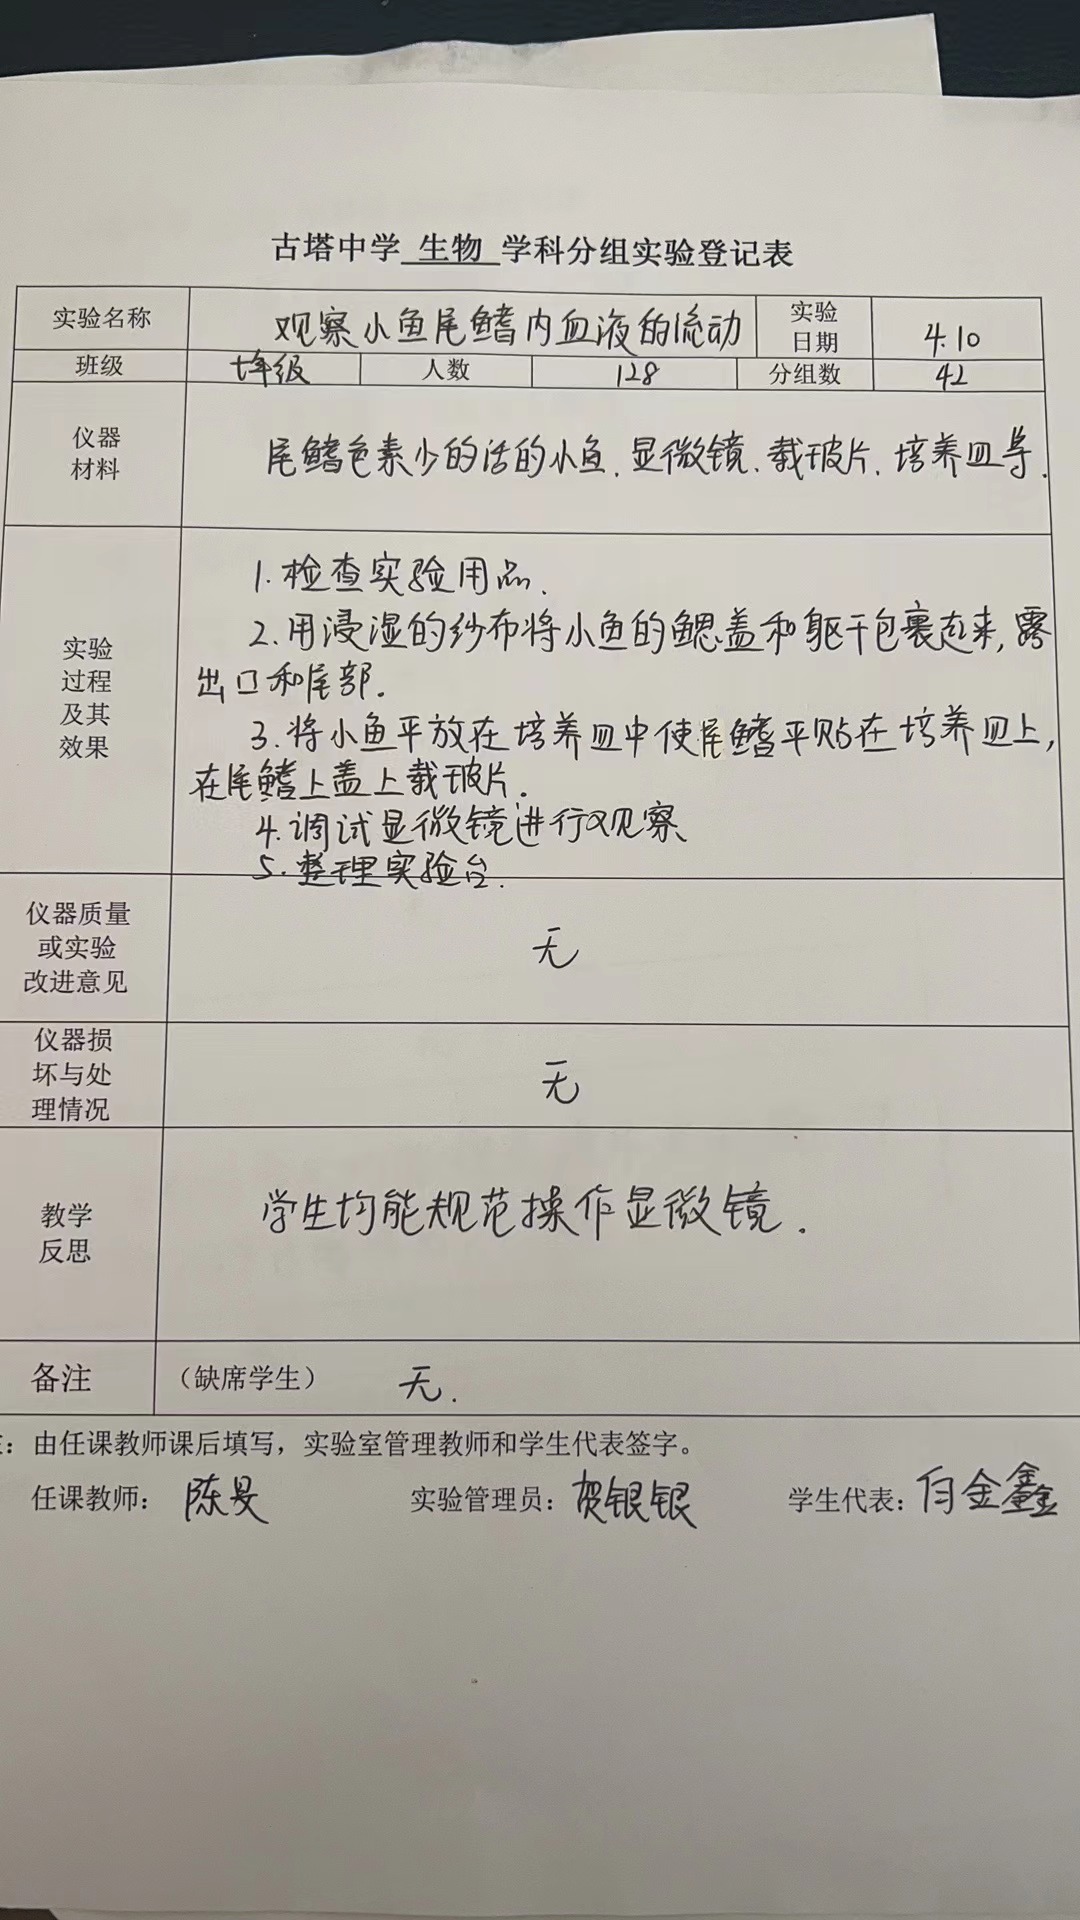 古塔中学 生物 学科分组实验登记表
实验名称 观察小鱼尾鳍内血液的流动 实验日期 4.10
班级 七年级 人数 128 分组数 42
仪器材料 尾鳍色素少的活的小鱼、显微镜、载玻片、培养皿等.
实验过程及其效果
1.检查实验用品.
2.用浸湿的纱布将小鱼的鳃盖和躯干包裹起来,露
出口和尾部.
3.将小鱼平放在培养皿中使尾鳍平贴在培养皿上,
在尾鳍上盖上载玻片.
4.调试显微镜进行观察
5.整理实验台.
仪器质量或实验改进意见 无
仪器损坏与处理情况 无
教学反思 学生均能规范操作显微镜.
备注 (缺席学生) 无.
:由任课教师课后填写,实验室管理教师和学生代表签字。
任课教师: 陈旻 实验管理员: 贺银银 学生代表: 白金鑫